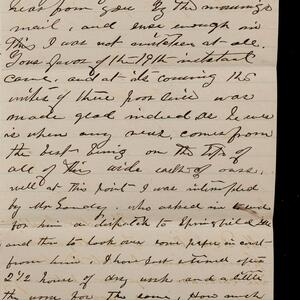 hear from you by the morning's
mail, and sure enough in
this I was not mistaken at all.
Your favor of the 19th instant
came, and at its coming the
writer of these poor lines was
made glad indeed as he ever
is when any news comes from
the best being on the top of
all of this wide earth of ours.
well at this point I was interrupted
by Mr. who asked me to
for him a dispatch to Springfield Ill
and then to look over some papers in
from him. I have just returned after
2 1/2 hours of dry work and a little
the worse for the same. How much